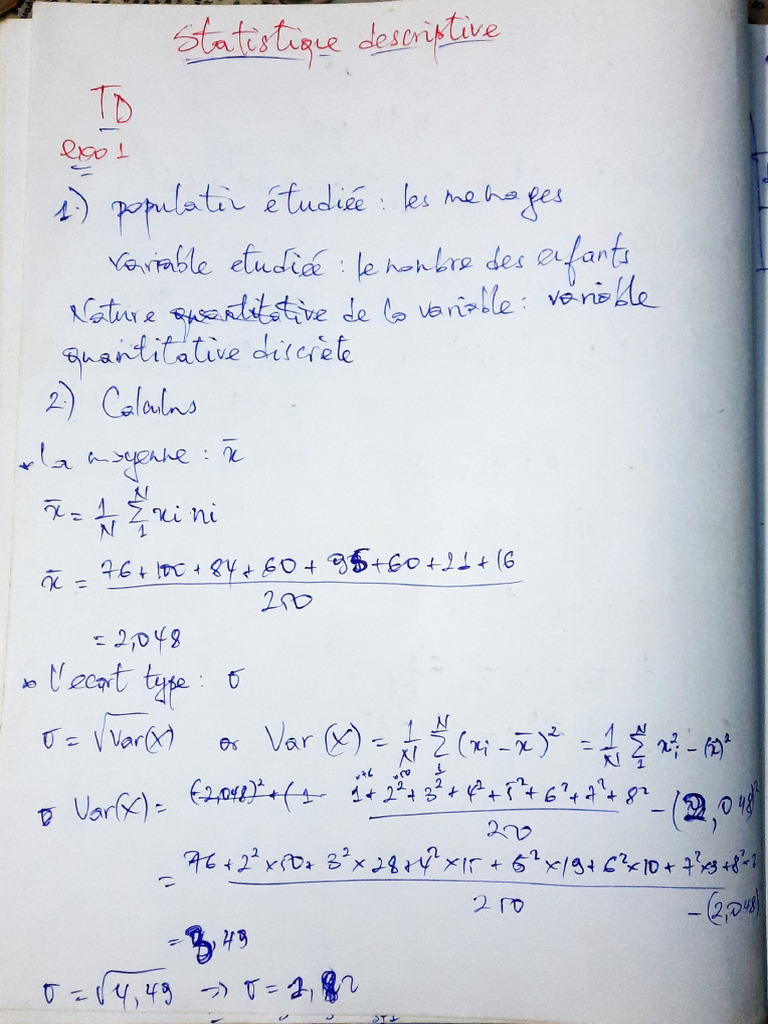 Statistique descriptive
TD
exo 1
1.) populatin étudiée : les menages
variable etudiée : le nombre des enfants
Nature quantitative de la variable : variable
quantitative discrète
2.) Calculs
* la moyenne : x̄
x̄ = 1/N Σ₁ᴺ xi ni
x̄ = (76 + 100 + 84 + 60 + 95 + 60 + 21 + 16) / 250
= 2,048
* l'ecart type : σ
σ = √Var(x) or Var(X) = 1/N Σ₁ᴺ (xi - x̄)² = 1/N Σ₁ᴺ xi² - (x̄)²
Var(X) = (-2,048)² + (1 - 1 + 2² + 3² + 4² + 5² + 6² + 7² + 8² / 250 - (2,048)²
= (76 + 2² × 50 + 3² × 28 + 4² × 15 + 5² × 19 + 6² × 10 + 7² × 3 + 8² × 2) / 250 - (2,048)
,49
σ = √4,49 → σ =